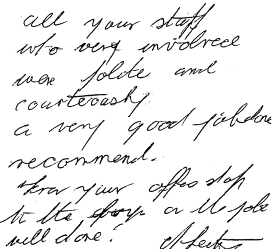 all your staff
who very involved
were polite and
courteously
a very good job done
recommend.
your office staff
to the on the job
well done!